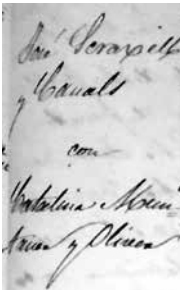 José Serapill
y Canals
con
Catalina Mun
taner y Oliver